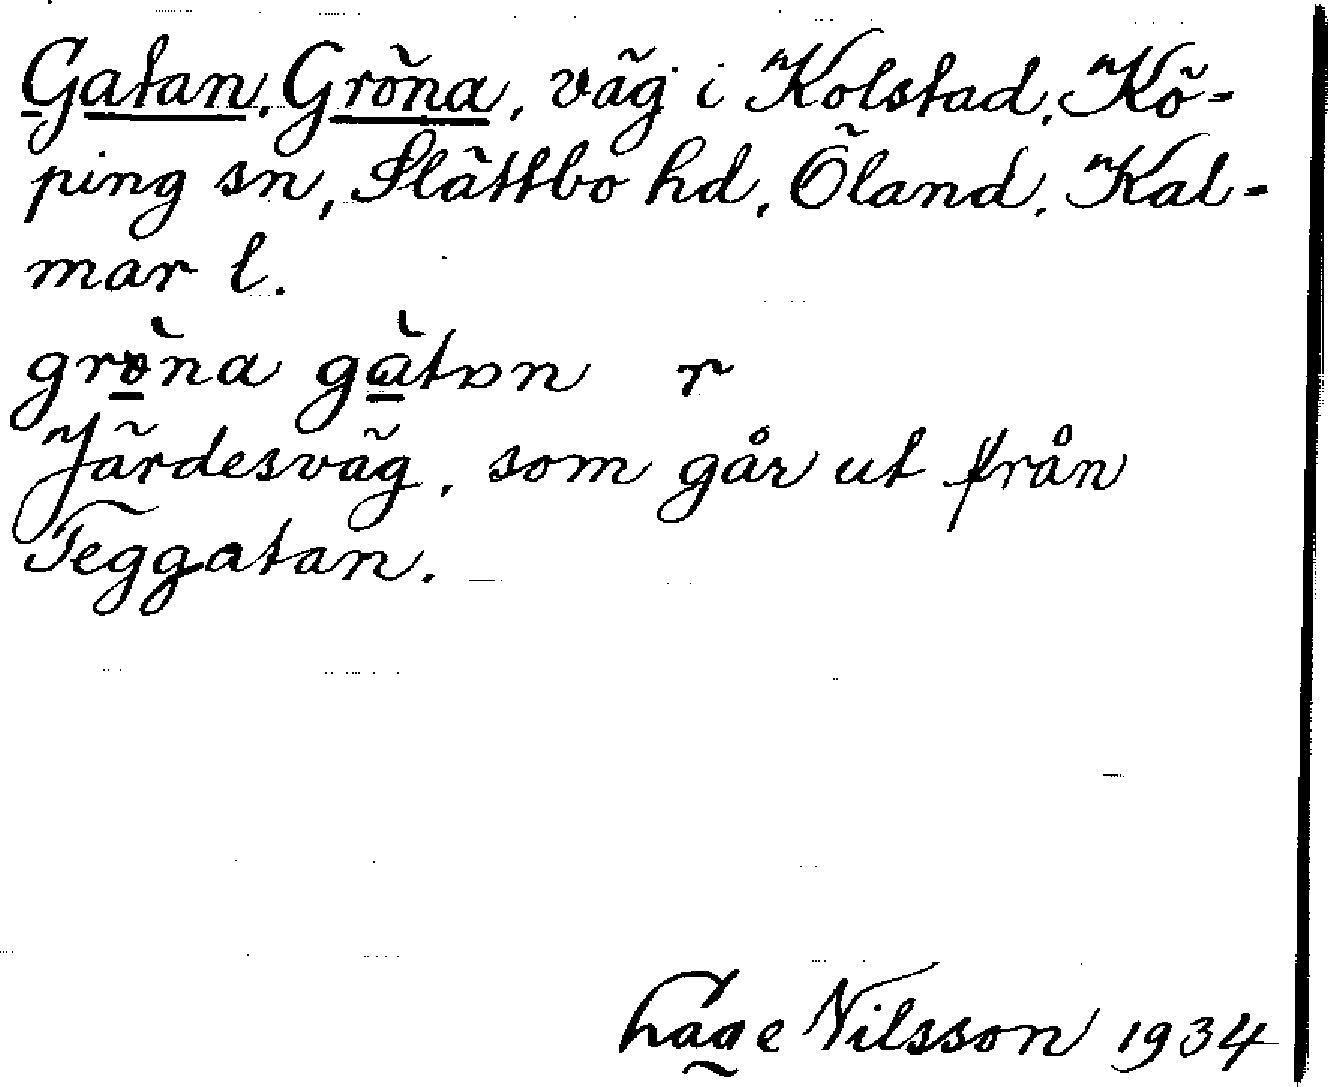 Gatan, Gröna, väg i Kolstad, Kö-
ping sn, Slättbo hd, Öland, Kal-
mar l.
grö̀na gàtɒn r
Järdesväg, som går ut från
Teggatan.
Hage Nilsson 1934